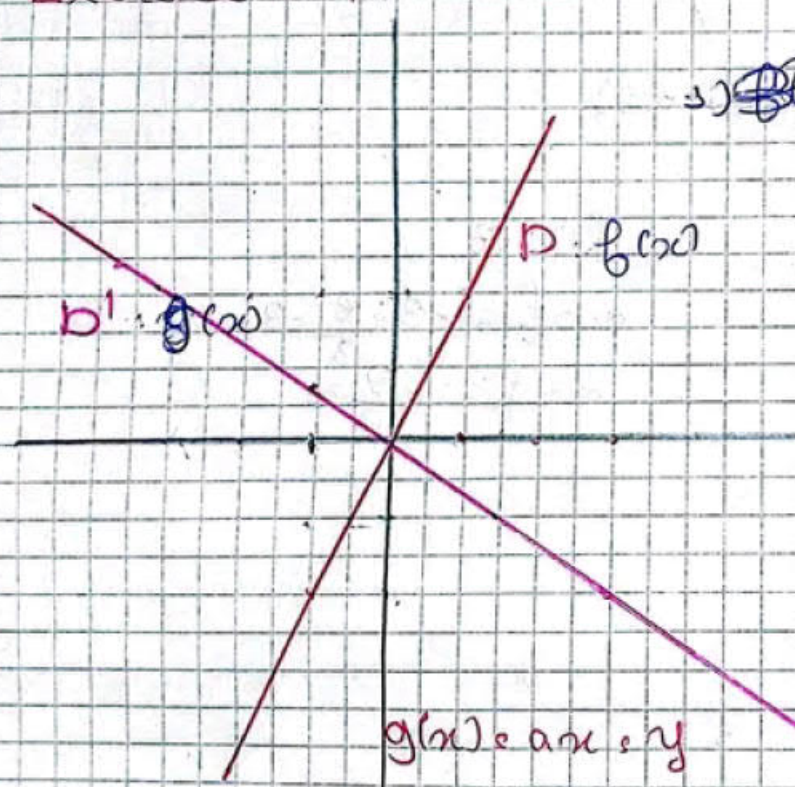 1)
D : f(x)
D' : g(x)
g(x) = ax = y